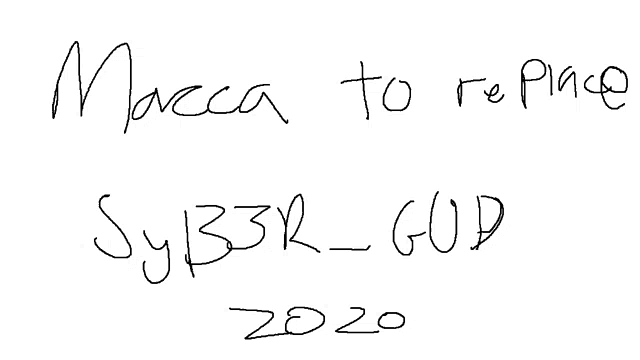 Macca to rePlace
SyB3R_GUD
2020